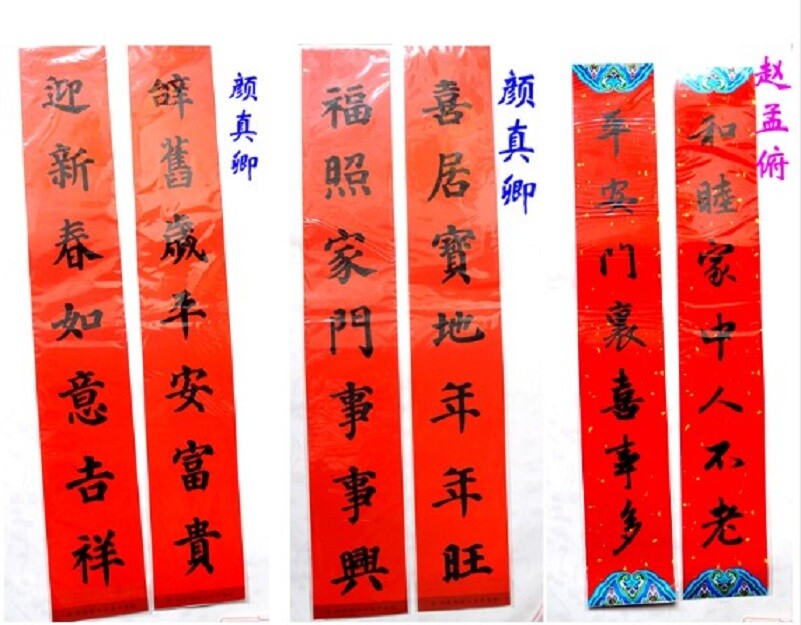 颜真卿
辞舊歲平安富貴
迎新春如意吉祥
颜真卿
喜居寶地年年旺
福照家門事事興
赵孟俯
和睦家中人不老
平安门裏喜事多